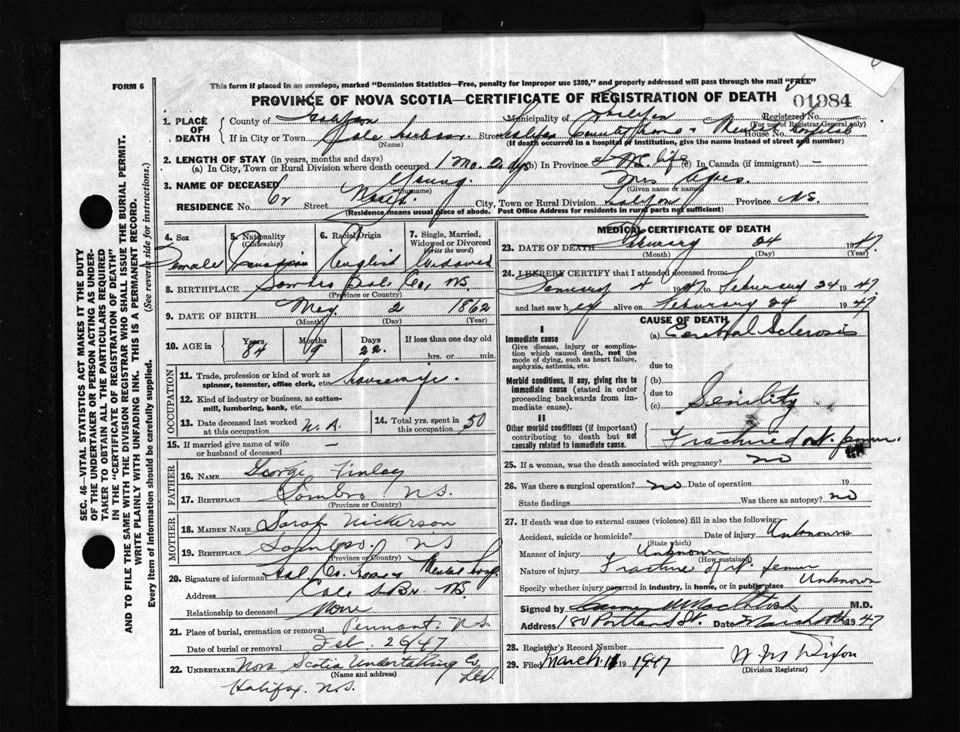 FORM 6
This form if placed in an envelope, marked "Dominion Statistics—Free, penalty for improper use $300," and properly addressed will pass through the mail "FREE"
PROVINCE OF NOVA SCOTIA—CERTIFICATE OF REGISTRATION OF DEATH
01984
1. PLACE OF DEATH
County of Halifax Municipality of Halifax Registered No.
(For use of Registrar General only)
If in City or Town Cole Harbour Street Halifax County Home & Mental Hospital House No.
(Name) (If death occurred in a hospital or institution, give the name instead of street and number)
2. LENGTH OF STAY (in years, months and days)
(a) In City, Town or Rural Division where death occurred 1 mo. 20 dys (b) In Province of N.S. life (c) In Canada (if immigrant) —
3. NAME OF DECEASED Young Mrs
(Surname) (Given name or names)
RESIDENCE No. Street City, Town or Rural Division Halifax Province N.S.
(Residence means usual place of abode. Post Office Address for residents in rural parts not sufficient)
4. Sex
Female
5. Nationality
(Citizenship)
Canadian
6. Racial Origin
English
7. Single, Married, Widowed or Divorced
(write the word)
Widowed
8. BIRTHPLACE Sambro Hal. Co., N.S.
(Province or Country)
9. DATE OF BIRTH May 2 1862
(Month) (Day) (Year)
10. AGE in Years Months Days If less than one day old
84 9 22 hrs. or min.
OCCUPATION
11. Trade, profession or kind of work as spinner, teamster, office clerk, etc. Housewife.
12. Kind of industry or business, as cotton-mill, lumbering, bank, etc.
13. Date deceased last worked at this occupation N.A.
14. Total yrs. spent in this occupation 50
15. If married give name of wife or husband of deceased —
FATHER
16. NAME George Finlay
17. BIRTHPLACE Sambro N.S.
(Province or Country)
MOTHER
18. MAIDEN NAME Sarah Nickerson
19. BIRTHPLACE Sambro N.S.
(Province or Country)
20. Signature of informant Hal. Co. Home & Mental Hosp.
Address Cole Hbr N.S.
Relationship to deceased None
21. Place of burial, cremation or removal Pennant, N.S.
Date of burial or removal Feb. 26/47
22. UNDERTAKER Nova Scotia Undertaking Co. Ltd.
(Name and address)
Halifax, N.S.
MEDICAL CERTIFICATE OF DEATH
23. DATE OF DEATH February 24 1947.
(Month) (Day)
24. I HEREBY CERTIFY that I attended deceased from:
January 4 1947 to February 24 1947
and last saw her alive on February 24 1947
CAUSE OF DEATH
I
Immediate cause
Give disease, injury or complication which caused death, not the mode of dying, such as heart failure, asphyxia, asthenia, etc.
(a) Cerebral Sclerosis
due to
Morbid conditions, if any, giving rise to immediate cause (stated in order proceeding backwards from immediate cause).
(b)
due to
(c) Senility
II
Other morbid conditions (if important) contributing to death but not causally related to immediate cause.
Fractured rt. femur.
25. If a woman, was the death associated with pregnancy? no
26. Was there a surgical operation? no Date of operation 19
State findings Was there an autopsy? no
27. If death was due to external causes (violence) fill in also the following:
Accident, suicide or homicide? Date of injury Unknown
(State which)
Manner of injury Unknown
(How sustained)
Nature of injury Fracture of rt. femur
Specify whether injury occurred in industry, in home, or in public place Unknown
Signed by M.D.
Address 180 Portland St. Date March 10th 1947
28. Registrar's Record Number
29. Filed March 11 19 1947 W M Dixon
(Division Registrar)
SEC. 46—VITAL STATISTICS ACT MAKES IT THE DUTY
OF THE UNDERTAKER OR PERSON ACTING AS UNDER-
TAKER TO OBTAIN ALL THE PARTICULARS REQUIRED
IN THE "CERTIFICATE OF REGISTRATION OF DEATH"
AND TO FILE THE SAME WITH THE DIVISION REGISTRAR WHO SHALL ISSUE THE BURIAL PERMIT.
WRITE PLAINLY WITH UNFADING INK. THIS IS A PERMANENT RECORD.
Every item of information should be carefully supplied. (See reverse side for instructions.)